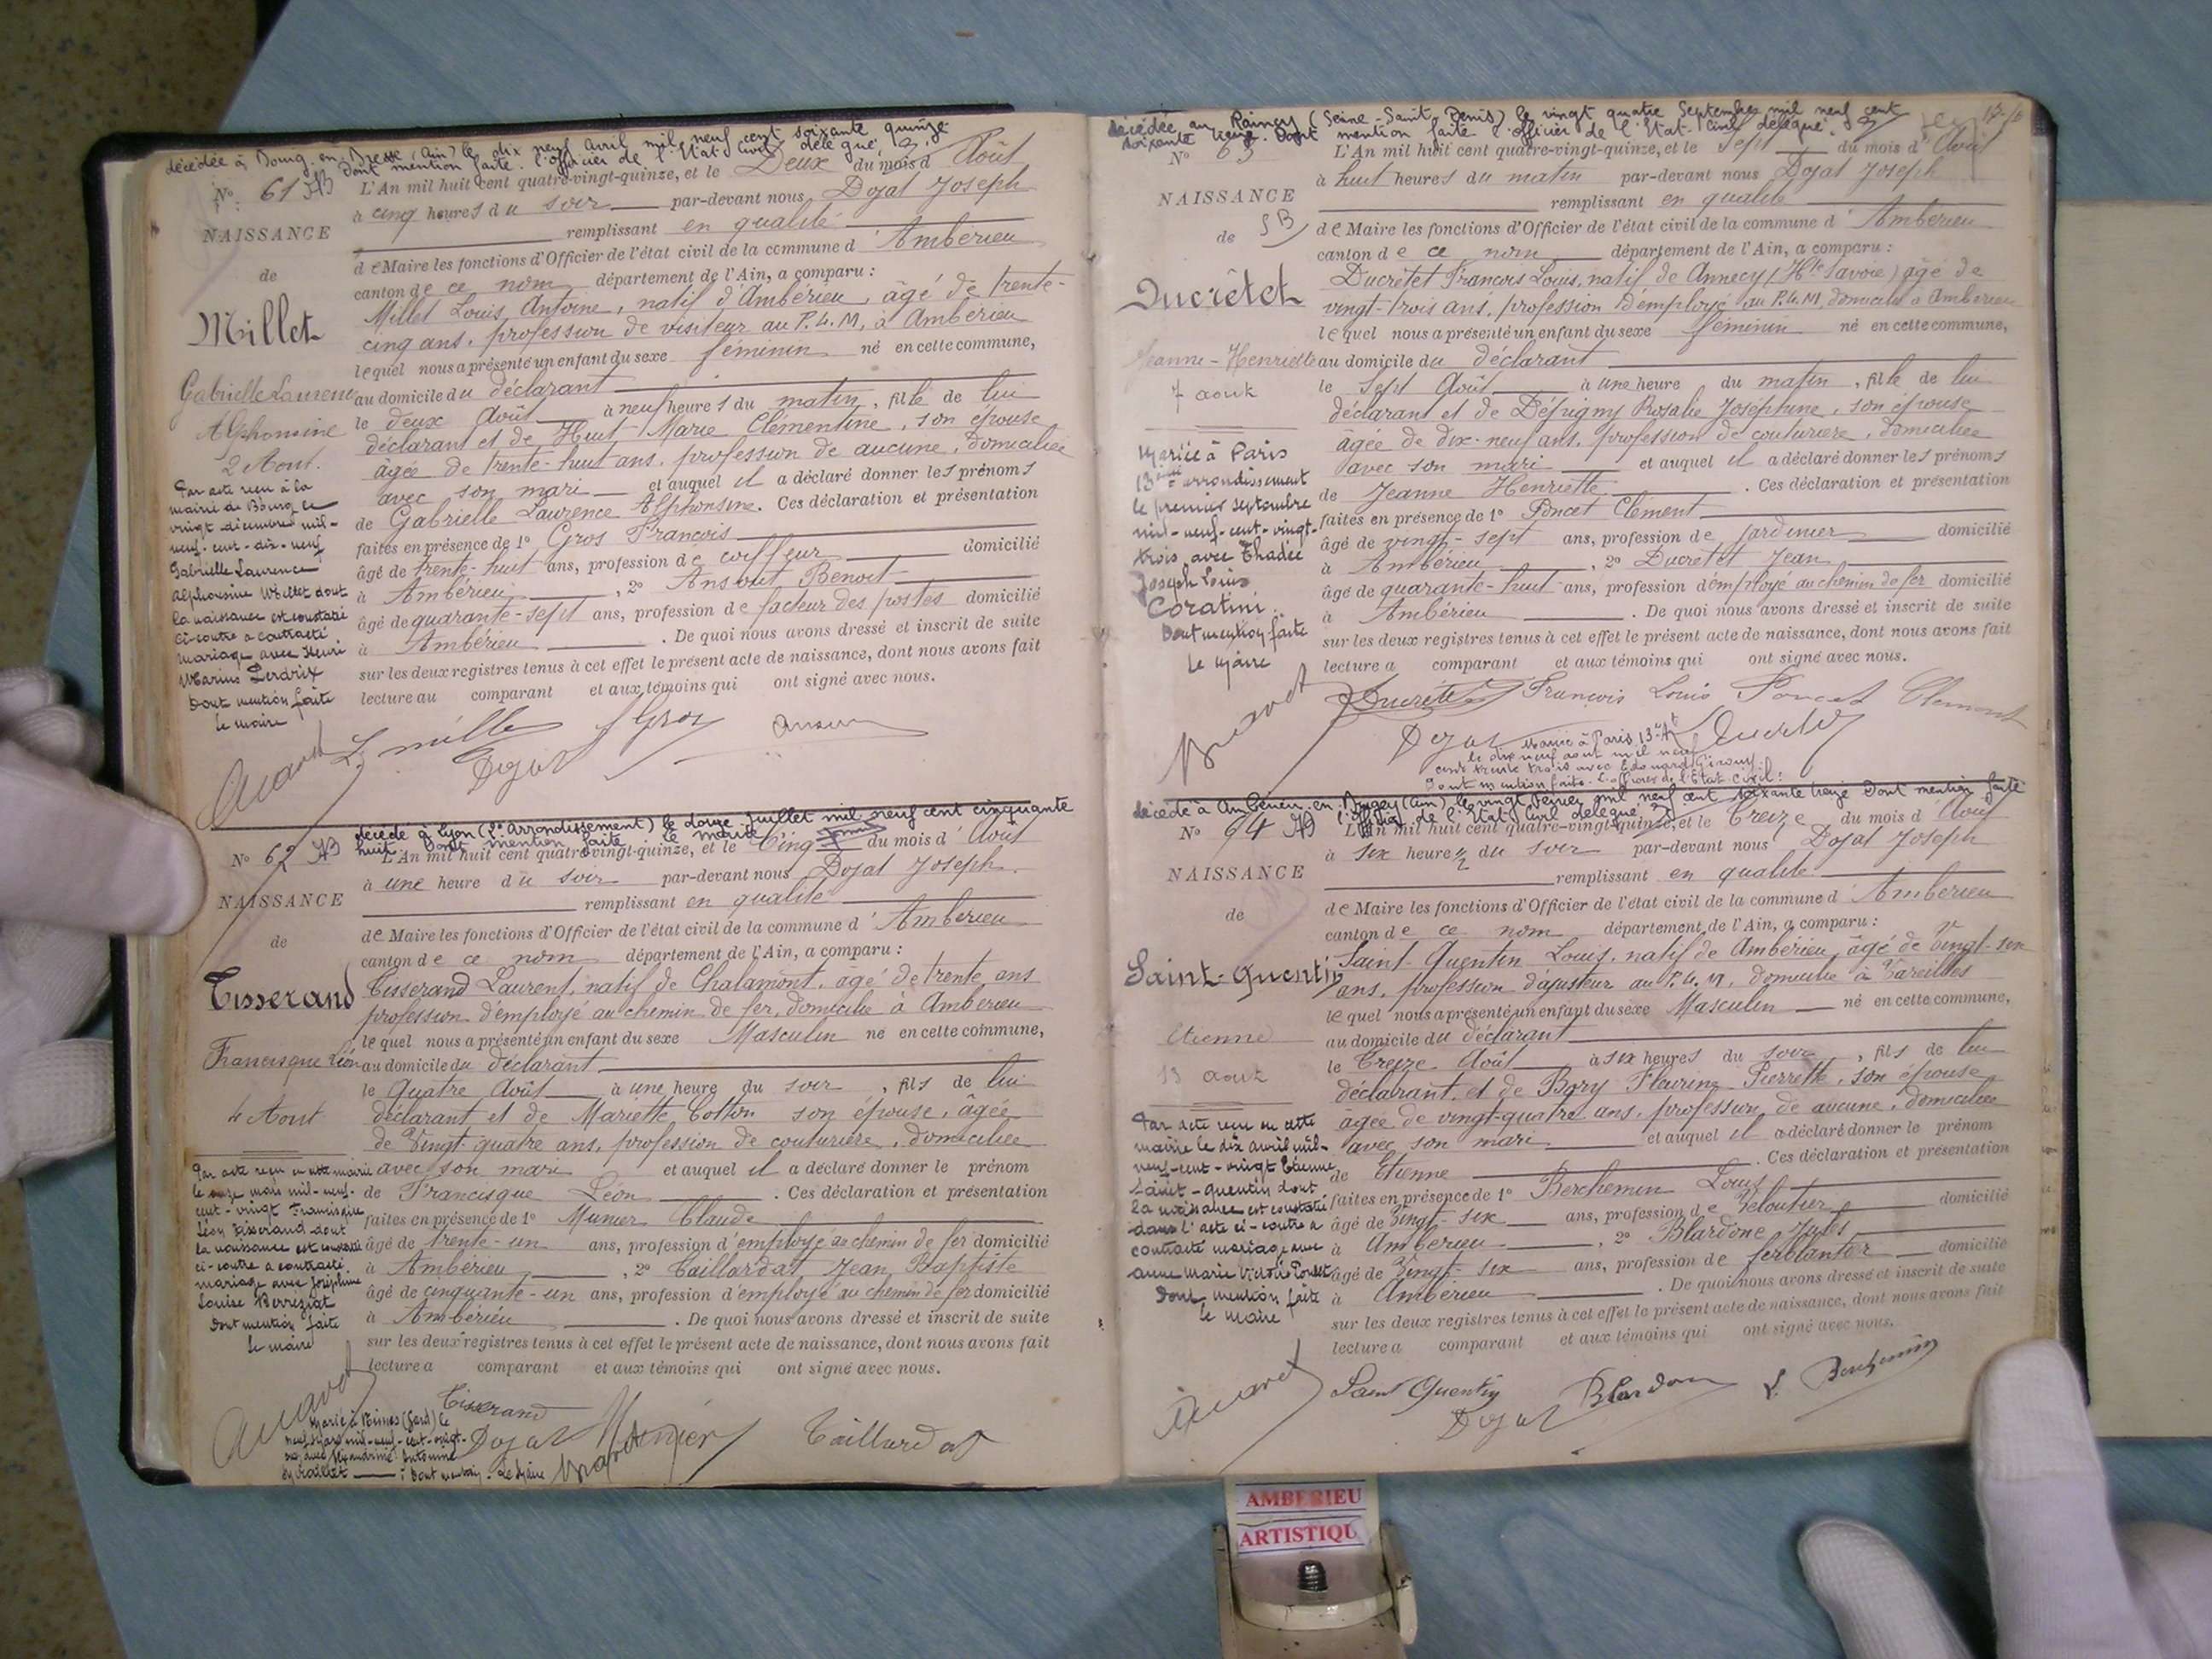 décédée à Bourg-en-Bresse (Ain) le dix neuf Avril mil neuf cent soixante quinze
Dont mention faite. l'officier de l'Etat Civil délégué.
N° 61
L'An mil huit cent quatre-vingt-quinze, et le Deux du mois d'Août
à cinq heures du soir par-devant nous Dojat Joseph
NAISSANCE
remplissant en qualité
de Maire les fonctions d'Officier de l'état civil de la commune d'Ambérieu
de
canton de ce nom département de l'Ain, a comparu :
Millet Louis Antoine, natif d'Ambérieu, âgé de trente-
Millet
cinq ans, profession de visiteur au P.L.M, à Ambérieu
lequel nous a présenté un enfant du sexe féminin né en cette commune,
Gabrielle Laurence
au domicile du déclarant
le deux Août à neuf heures du matin, fille de lui
Alphonsine
déclarant et de Huit Marie Clémentine, son épouse
2 Aout.
âgée de trente-huit ans, profession de aucune, domiciliée
avec son mari et auquel il a déclaré donner les prénoms
de Gabrielle Laurence Alphonsine. Ces déclaration et présentation
faites en présence de 1° Gros François
âgé de trente-huit ans, profession de coiffeur domicilié
à Ambérieu, 2° Benoit
âgé de quarante-sept ans, profession de facteur des postes domicilié
à Ambérieu. De quoi nous avons dressé et inscrit de suite
sur les deux registres tenus à cet effet le présent acte de naissance, dont nous avons fait
lecture au comparant et aux témoins qui ont signé avec nous.
Par acte reçu à la
mairie de Bourg le
vingt décembre mil-
neuf-cent-dix-neuf
Gabrielle Laurence
Alphonsine Millet dont
la naissance est constatée
ci-contre a contracté
mariage avec Henri
Marius Perdrix
Dont mention faite
le maire
L. Millet F Gros
Dojat
décédé à Lyon (2e Arrondissement) le douze Juillet mil neuf cent cinquante
huit. Dont mention faite le maire
N° 62
L'An mil huit cent quatre-vingt-quinze, et le Cinq du mois d'Août
à une heure du soir par-devant nous Dojat Joseph.
NAISSANCE
remplissant en qualité
de Maire les fonctions d'Officier de l'état civil de la commune d'Ambérieu
de
canton de ce nom département de l'Ain, a comparu :
Tisserand
Tisserand Laurent, natif de Chalamont, âgé de trente ans
profession d'employé au chemin de fer, domicilié à Ambérieu
lequel nous a présenté un enfant du sexe Masculin né en cette commune,
Francisque Léon
au domicile du déclarant
le Quatre Août à une heure du soir, fils de lui
4 Aout
déclarant et de Mariette Cotton son épouse, âgée
de Vingt-quatre ans, profession de couturière, domiciliée
avec son mari et auquel il a déclaré donner le prénom
de Francisque Léon. Ces déclaration et présentation
faites en présence de 1° Munier Claude
âgé de trente-un ans, profession d'employé au chemin de fer domicilié
à Ambérieu, 2° Taillardat Jean Baptiste
âgé de cinquante-un ans, profession d'employé au chemin de fer domicilié
à Ambérieu. De quoi nous avons dressé et inscrit de suite
sur les deux registres tenus à cet effet le présent acte de naissance, dont nous avons fait
lecture a comparant et aux témoins qui ont signé avec nous.
Par acte reçu en cette mairie
le onze mars mil-neuf-
cent-vingt Francisque
Léon Tisserand dont
la naissance est constatée
ci-contre a contracté
mariage avec Joséphine
Louise
Dont mention faite
le maire
Tisserand
Dojat Munier Taillardat
Marié à Nimes (Gard) le
décédée au Raincy (Seine-Saint-Denis) le vingt quatre Septembre mil neuf cent
soixante neuf. Dont mention faite l'officier de l'Etat-Civil délégué.
N° 63
L'An mil huit cent quatre-vingt-quinze, et le Sept du mois d'Août
à huit heures du matin par-devant nous Dojat Joseph
NAISSANCE
remplissant en qualité
de
de Maire les fonctions d'Officier de l'état civil de la commune d'Ambérieu
canton de ce nom département de l'Ain, a comparu :
Ducrêtet
Ducrêtet François Louis, natif de Annecy (Hte Savoie) âgé de
vingt-trois ans, profession d'employé au P.L.M, domicilié à Ambérieu
lequel nous a présenté un enfant du sexe féminin né en cette commune,
Jeanne-Henriette
au domicile du déclarant
7 aout
le Sept Août à une heure du matin, fille de lui
déclarant et de Défrigny Rosalie Joséphine, son épouse
âgée de dix-neuf ans, profession de couturière, domiciliée
avec son mari et auquel il a déclaré donner les prénoms
de Jeanne Henriette. Ces déclaration et présentation
faites en présence de 1° Poncet Clément
âgé de vingt-sept ans, profession de jardinier domicilié
à Ambérieu, 2° Ducrêtet Jean
âgé de quarante-huit ans, profession d'employé au chemin de fer domicilié
à Ambérieu. De quoi nous avons dressé et inscrit de suite
sur les deux registres tenus à cet effet le présent acte de naissance, dont nous avons fait
lecture a comparant et aux témoins qui ont signé avec nous.
Mariée à Paris
13ème arrondissement
le premier septembre
mil-neuf-cent-vingt-
trois avec Thadée
Joseph Louis
Coratini.
Dont mention faite
le maire
Ducrêtet François Louis Poncet Clément
Dojat
Mariée à Paris 13e Art
le dix neuf août mil neuf
cent trente trois avec Edouard
Dont mention faite. L'officier de l'Etat Civil.
décédé à Ambérieu-en-Bugey (Ain) le vingt Février mil neuf cent soixante treize Dont mention faite
l'officier de l'Etat Civil délégué
N° 64
L'An mil huit cent quatre-vingt-quinze, et le Treize du mois d'Août
à six heures du soir par-devant nous Dojat Joseph
NAISSANCE
remplissant en qualité
de
de Maire les fonctions d'Officier de l'état civil de la commune d'Ambérieu
canton de ce nom département de l'Ain, a comparu :
Saint-Quentin
Saint-Quentin Louis, natif de Ambérieu, âgé de Vingt-six
ans, profession d'ajusteur au P.L.M, domicilié à Vareilles
lequel nous a présenté un enfant du sexe Masculin né en cette commune,
Etienne
au domicile du déclarant
13 aout
le Treize Août à six heures du soir, fils de lui
déclarant, et de Bory Fleurine Pierrette, son épouse
âgée de vingt-quatre ans, profession de aucune, domiciliée
avec son mari et auquel il a déclaré donner le prénom
de Etienne. Ces déclaration et présentation
faites en présence de 1° Berchemin Louis
âgé de Vingt-six ans, profession de Veloutier domicilié
à Ambérieu, 2° Blardone Jules
âgé de Vingt-six ans, profession de ferblantier domicilié
à Ambérieu. De quoi nous avons dressé et inscrit de suite
sur les deux registres tenus à cet effet le présent acte de naissance, dont nous avons fait
lecture a comparant et aux témoins qui ont signé avec nous.
Par acte reçu en cette
mairie le dix avril mil-
neuf-cent-vingt Etienne
Saint-Quentin dont
la naissance est constatée
dans l'acte ci-contre a
contracté mariage avec
Anne Marie Victoire
Dont mention faite
le maire
Saint Quentin Blardone L. Berchemin
Dojat
AMBERIEU
ARTISTIQU